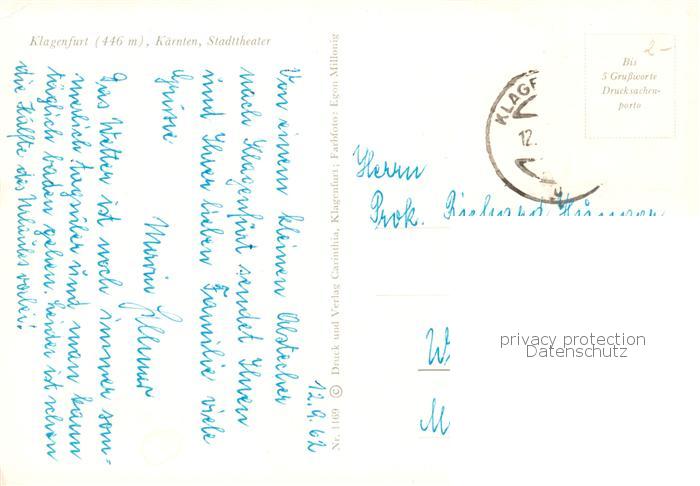 Klagenfurt (446 m), Kärnten, Stadttheater
12.9.62
Von einem kleinen Abstecher
nach Klagenfurt sendet Ihnen
und Ihrer lieben Familie viele
Grüsse
Maria
Das Wetter ist noch immer som-
merlich und man kann
täglich baden gehen. Leider ist schon
die Hälfte des Urlaubes vorbei!
Nr. 1169 © Druck und Verlag Carinthia, Klagenfurt; Farbfoto: Egon Milltonig
KLAGF
12.
2-
Bis
5 Grußworte
Drucksachen-
porto
Herrn
Prok. Richard
W
M
privacy protection
Datenschutz